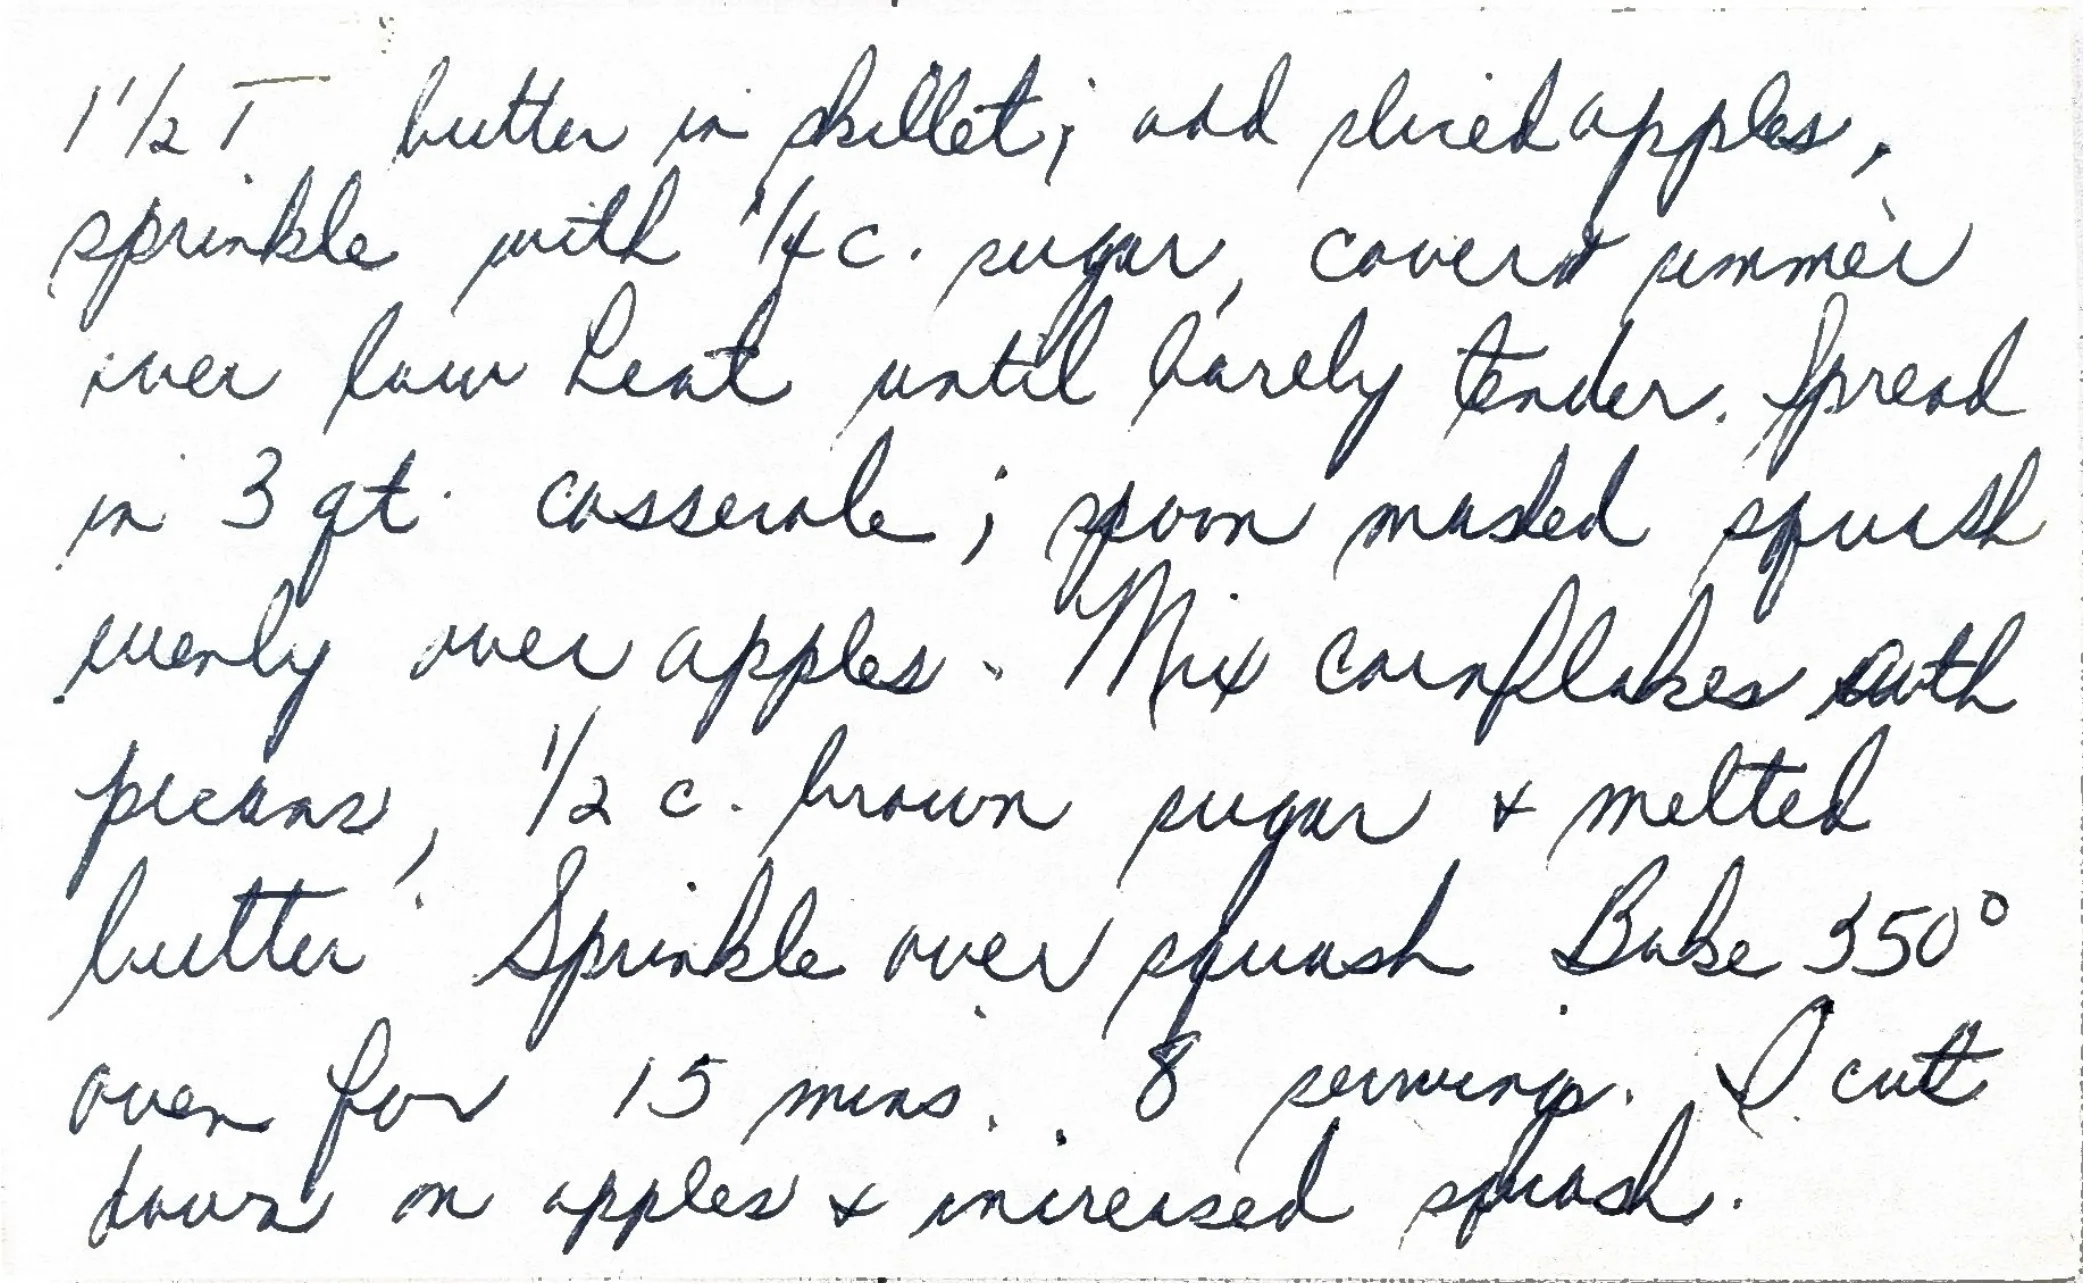 1 1/2 T butter in skillet; add sliced apples,
sprinkle with 1/4 c. sugar, cover & simmer
over low heat until barely tender. Spread
in 3 qt. casserole; spoon mashed squash
evenly over apples. Mix cornflakes with
pecans, 1/2 c. brown sugar & melted
butter. Sprinkle over squash. Bake 350°
oven for 15 mins. 8 servings. I cut
down on apples & increased squash.